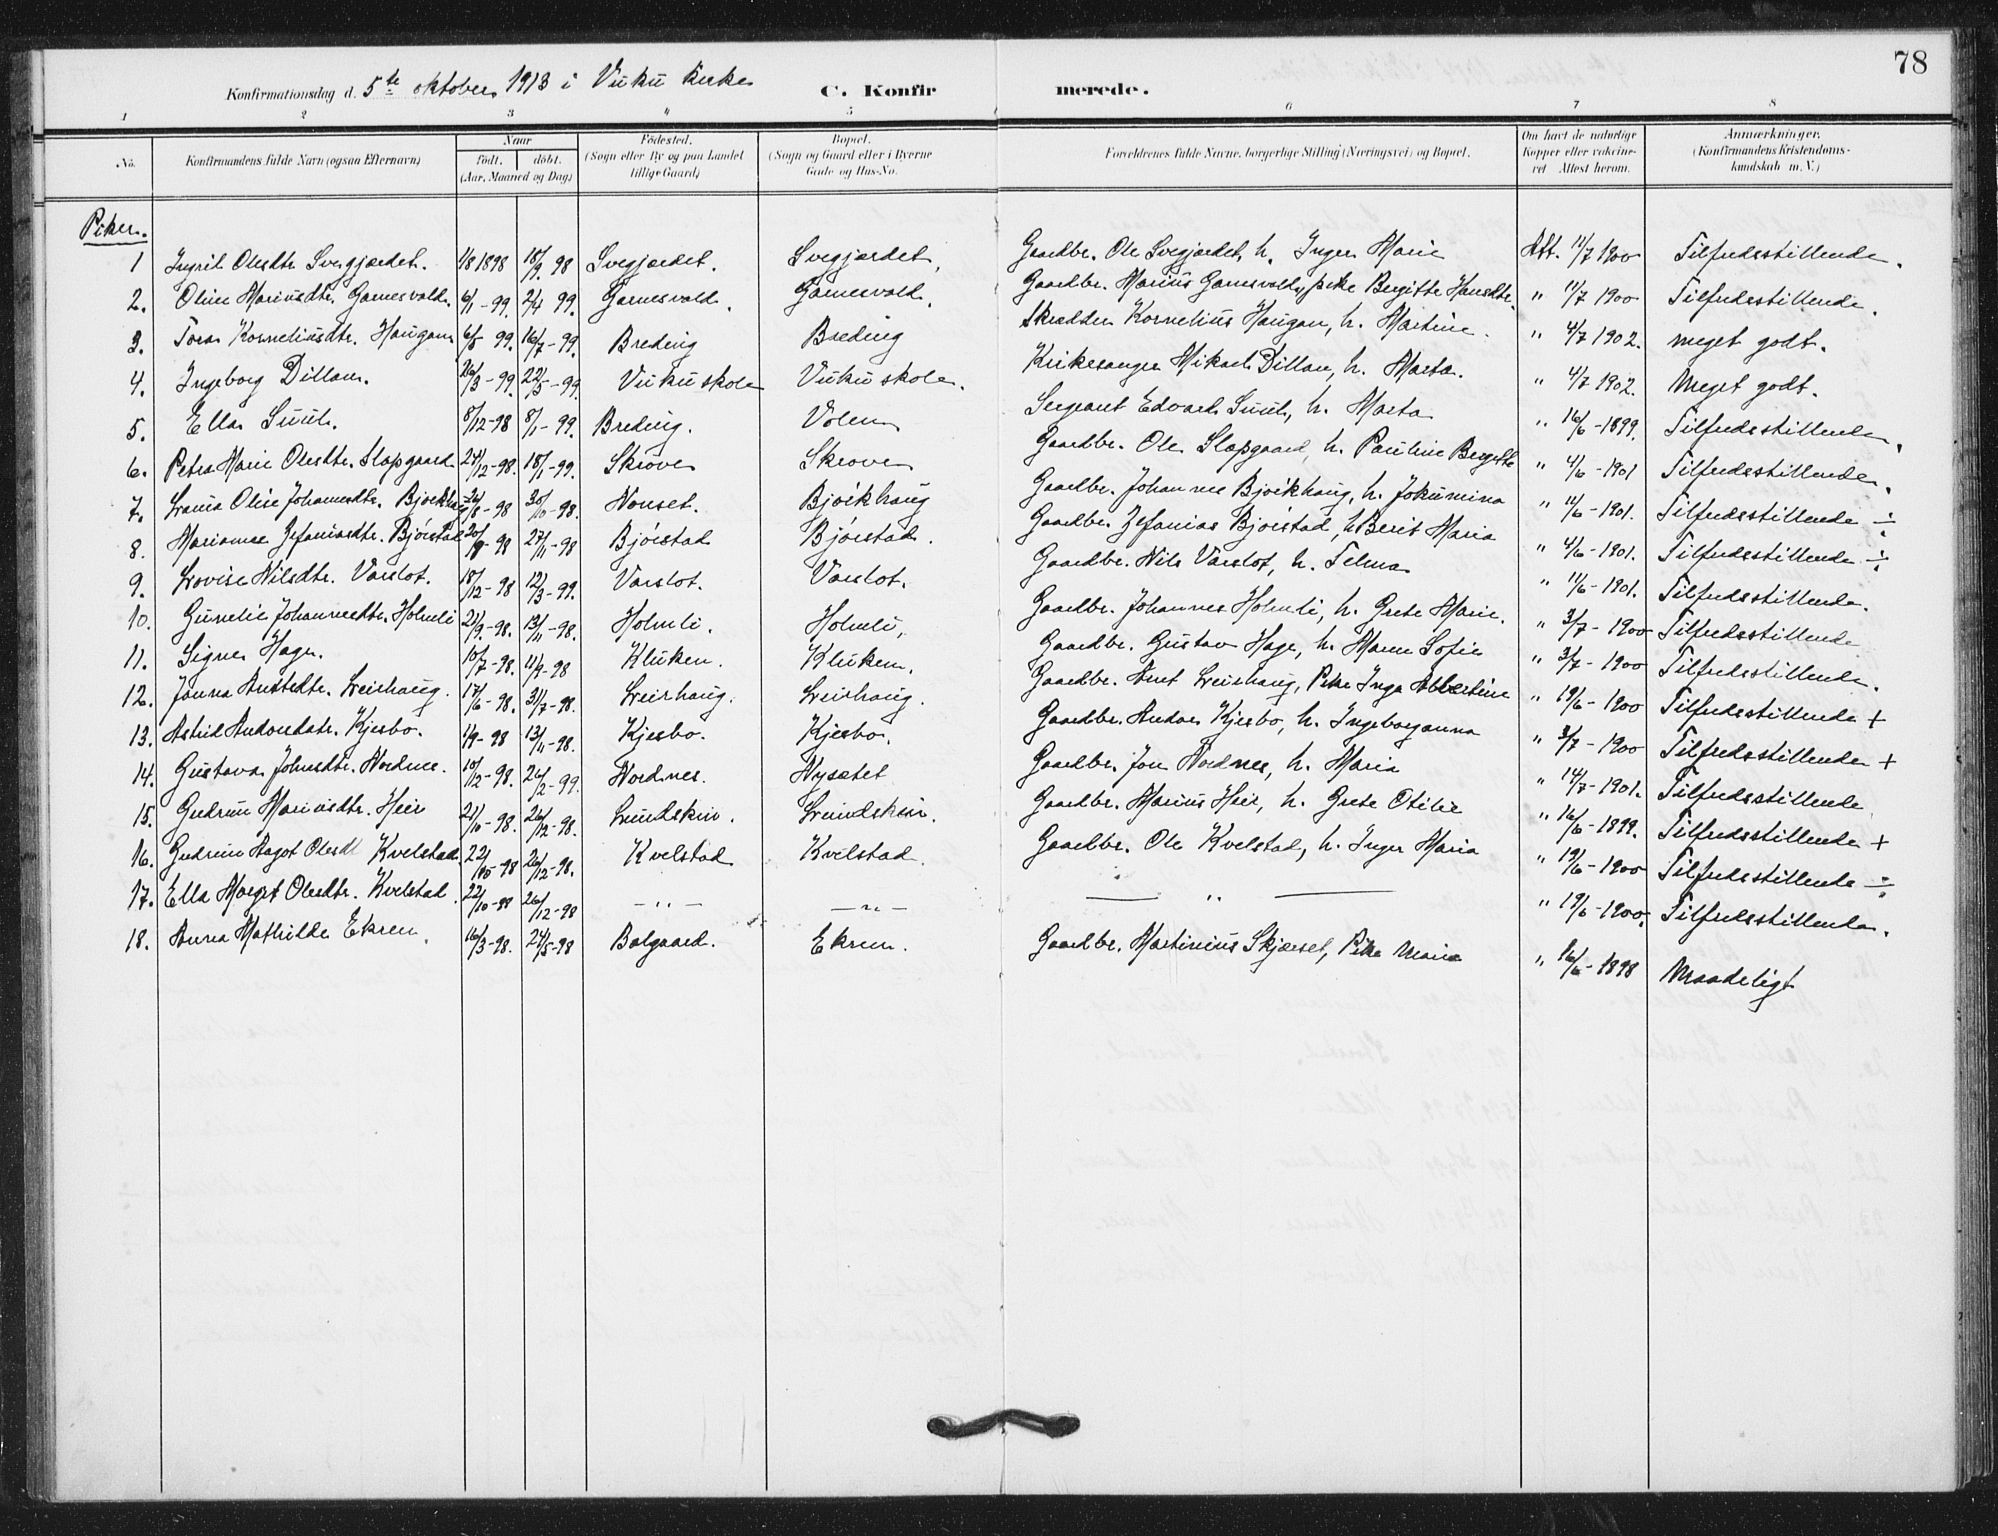 78
Konfirmationsdag d. 5te oktober 1913 i Vuku kirke C. Konfirmerede.
1 2 3 4 5 6 7 8
No. Konfirmandens fulde Navn (ogsaa Efternavn) Naar født. døbt. (Aar, Maaned og Dag) Fødested. (Sogn eller By og paa Landet tillige Gaard) Bopæl. (Sogn og Gaard eller i Byerne Gade og Hus-No. Forældrenes fulde Navne, borgerlige Stilling (Næringsvei) og Bopæl. Om havt de naturlige Kopper eller vakcineret Attest herom. Anmærkninger. (Konfirmandens Kristendomskundskab m. V.)
Piker.
1 Ingril Olesdtr. Svegjærdet. 1/8 1898 18/9 98 Svegjærdet. Svegjærdet. Gaardbr. Ole Svegjærdet, h. Inger Marie Att. 11/7 1900 Tilfredsstillende.
2. Oline Mariusdtr. Garnesvold. 6/1-99. 2/4 99. Garnesvold. Garnesvold. Gaardbr. Marius Garnesvold, pike Bergitte Hansdtr. " 11/7 1900 Tilfredsstillende.
3. Tora Korneliusdtr. Haugan 6/5 99. 16/7-99. Breding Breding Skrædder Kornelius Haugan, h. Martine. " 4/7 1902. meget godt.
4. Ingeborg Dillan. 26/3-99. 22/5-99. Vuku skole Vuku skole. Kirkesanger Mikael Dillan, h. Marta. " 4/7 1902. Meget godt.
5. Ella Suul. 8/12-98 8/1-99. Breding. Volen Sergeant Edvard Suul, h. Marta " 16/6-1899. Tilfredsstillende.
6. Petra Marie Olesdtr. Slapgaard 24/12-98. 18/1-99. Skrove Skrove Gaardbr. Ole Slapgaard, h. Pauline Bergitte " 4/6-1901 Tilfredsstillende.
7. Laura Oline Johannesdtr. Bjørkhaug 26/8-98 30/10-98. Nonset. Bjørkhaug Gaardbr. Johannes Bjørkhaug, h. Jokumina " 11/6-1901. Tilfredsstillende ÷
8. Marianne Zefaniasdtr. Bjørstad 20/9-98 27/11-98 Bjørstad Bjørstad. Gaardbr. Zefanias Bjørstad, h. Berit Maria " 4/6-1901. Tilfredsstillende ÷
9. Lovise Nilsdtr. Varslot. 18/12-98 12/3-99. Varslot. Varslot. Gaardbr. Nils Varslot, h. Telma " 11/6-1901. Tilfredsstillende.
10. Gunelie Johannesdtr. Holmli 21/9-98. 13/11-98. Holmli. Holmli, Gaardbr. Johannes Holmli, h. Grete Marie. " 3/7-1900 Tilfredsstillende
11. Signe Hage. 10/7-98. 11/9-98 Kluken. Kluken. Gaardbr. Gustav Hage, h. Maren Sofie " 3/7-1900 Tilfredsstillende.
12. Janna Arntsdtr. Leirhaug. 17/6-98. 31/7-98. Leirhaug. Leirhaug. Gaardbr. Arnt Leirhaug, Pike Inga Albertine " 19/6-1900 Tilfredsstillende +
13. Astrid Andorsdatr. Kjesbo. 1/9-98 13/11-98. Kjesbo. Kjesbo. Gaardbr. Andor Kjesbo, h. Ingeborganna " 3/7-1900 Tilfredsstillende +
14. Gustava Johnsdtr. Nordnes. 10/12-98. 26/2-99. Nordnes. Nysætet Gaardbr. Jon Nordnes, h. Maria " 14/7-1901. Tilfredsstillende
15. Gudrun Mariusdtr. Heir 21/10-98. 26/12-98. Lundskin. Lundskin. Gaardbr. Marius Heir, h. Grete Otilie " 16/6-1899. Tilfredsstillende +
16. Gudrun Aagot Olesdt Kvelstad 22/10-98 26/12-98. Kvelstad Kvelstad. Gaardbr. Ole Kvelstad, h. Inger Maria " 19/6-1900 Tilfredsstillende ÷
17. Ella Marget Olesdtr. Kvelstad. 22/10-98 26/12-98 — " — — " — — " — " 19/6-1900. Tilfredsstillende.
18. Anna Mathilde Ekren. 16/3-98. 24/5-98 Balgaard. Ekren. Gaardbr. Martinius Skjærset, Pike Marie " 16/6-1898 Maadeligt